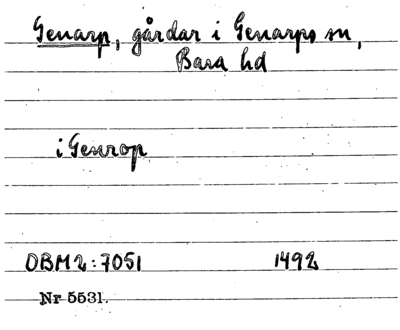 Genarp, gårdar i Genarps sn,
Bara hd
i Genrop
OBM 2:7051 1492
Nr 5531.